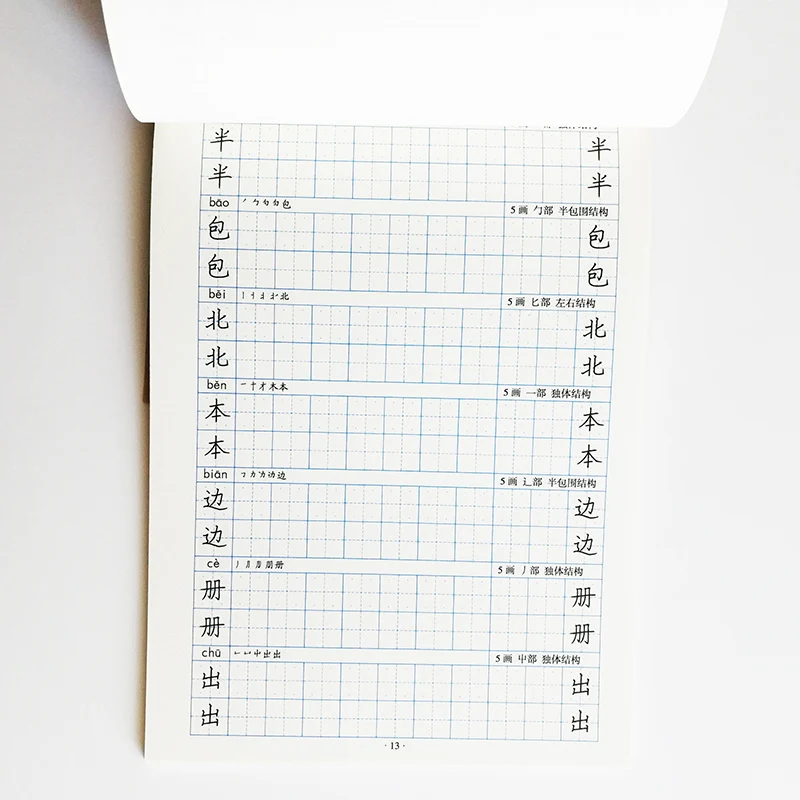 半 半
半 半
bāo 丿 勹 包 5画 勹部 半包围结构
包 包
包 包
běi 丨 北 5画 匕部 左右结构
北 北
北 北
běn 一 十 才 木 本 5画 一部 独体结构
本 本
本 本
biān 力 边 5画 辶部 半包围结构
边 边
边 边
cè 丿 册 5画 丿部 独体结构
册 册
册 册
chū 屮 出 5画 屮部 独体结构
出 出
出 出
· 13 ·